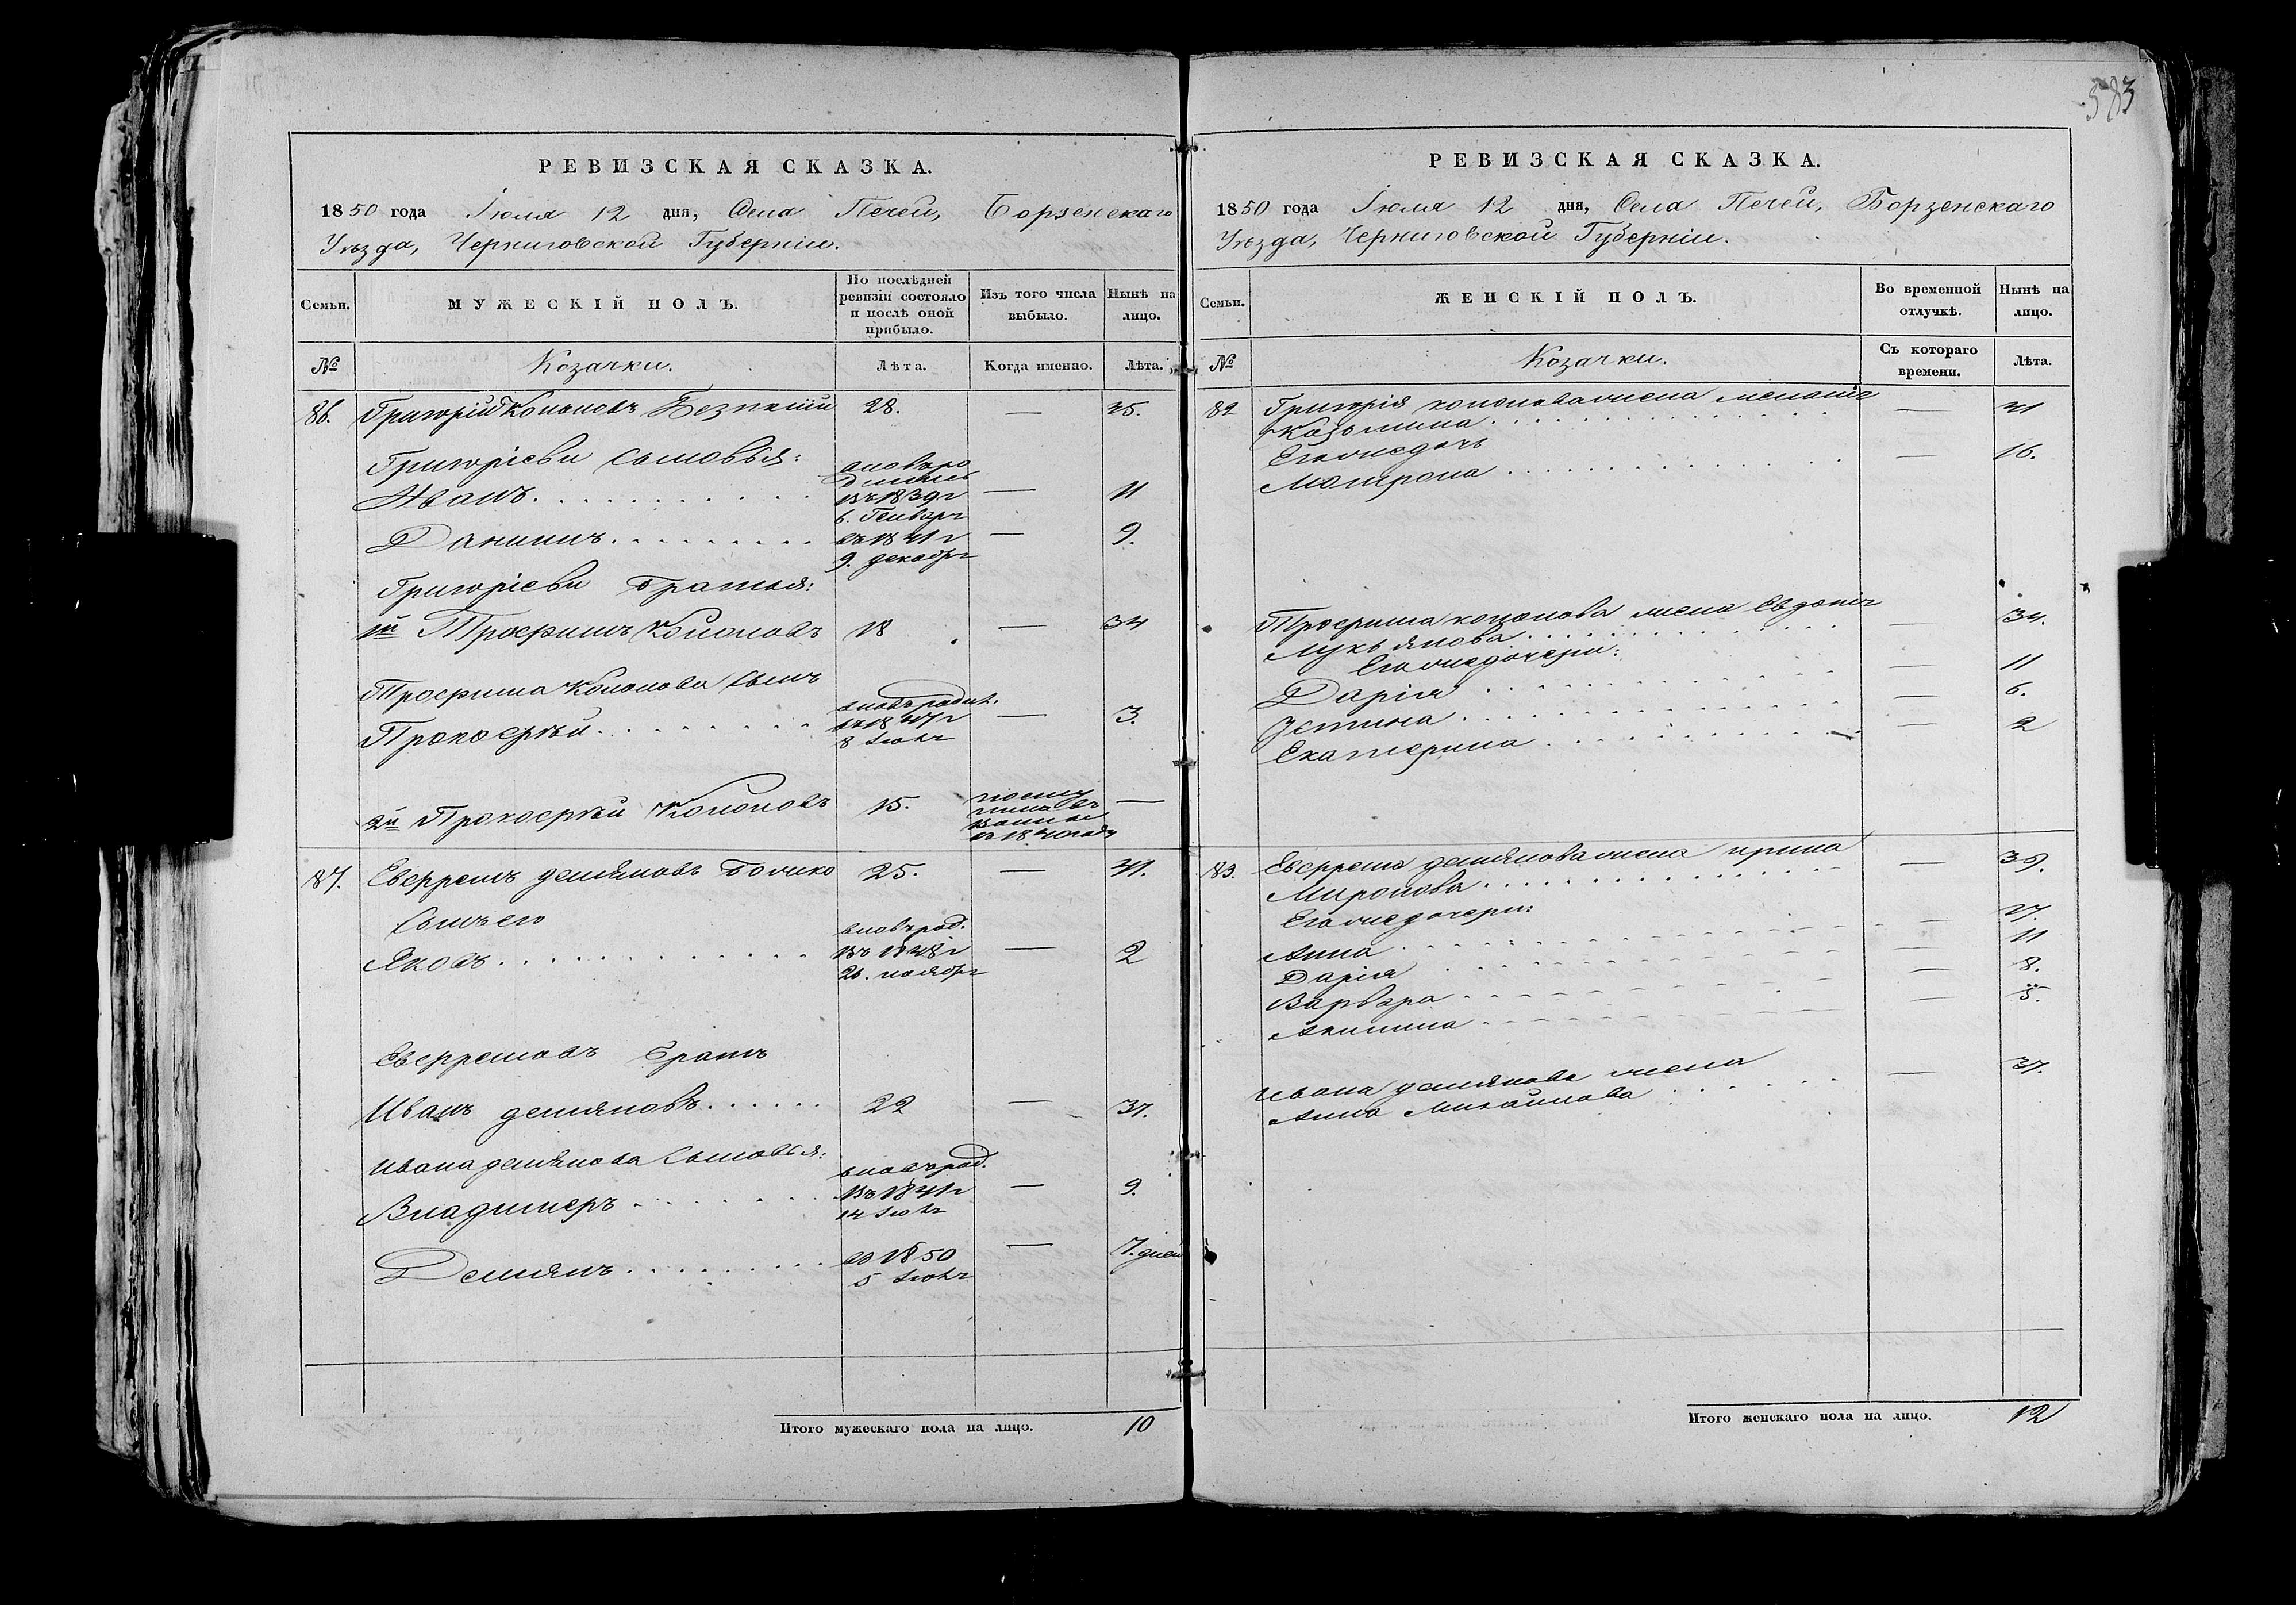 РЕВИЗСКАЯ СКАЗКА.
1850 года Іюля 12 дня, Села Печей, Борзенскаго
Уѣзда, Черниговской Губерніи.
Семьи.
МУЖЕСКІЙ ПОЛЪ.
По послѣдней
ревизіи состояло
и послѣ оной
прибыло.
Изъ того числа
выбыло.
Нынѣ на
лицо.
№
Козачки.
Лѣта.
Когда именно.
Лѣта.
86. Григорій Кононовъ 28. —
Григоріеви Сыновья:
вновь ро
дились
Иванъ въ 1839 г — 11
6. Генваря
Данилъ въ 1841 г — 9.
9. декабря
Григоріеви Братья:
1й Трофимъ Кононовъ 18 — 34
Трофима Кононова Сынъ
вновь родил.
Прокофій въ 1847 г — 3.
8 Іюля
2й Прокофій Кононовъ 15. —
въ 1840 году
87. Евфремъ демяновъ Бочко 25. — 41.
Сынъ его
вновь род.
Яковъ въ 1848 г — 2
26. ноября
Евфремовъ Братъ
Иванъ демяновъ 22 — 37.
Ивана демянова Сыновья:
вновь род.
Владимеръ въ 1841 г — 9.
14 Іюля
Демянъ въ 1850 — 7. дней
5 Іюля
Итого мужескаго пола на лицо. 10
583
РЕВИЗСКАЯ СКАЗКА.
1850 года Іюля 12 дня, Села Печей, Борзенскаго
Уѣзда, Черниговской Губерніи.
Семьи.
ЖЕНСКІЙ ПОЛЪ.
Во временной
отлучкѣ.
Нынѣ на
лицо.
№
Козачки.
Съ котораго
времени.
Лѣта.
82 Григорія кононова жена Меланія — 41
Козьмина
Егоже дочь — 16.
Мотрона
Трофима кононова жена Евдокія — 34.
Лукьянова
Егоже дочери:
Дарія — 11
Устина — 6.
Екатерина — 2
83. Евфрема демянова жена ирина — 39.
Миронова
Егоже дочери:
Анна — 17.
Дарія — 11
Варвара — 8.
Акилина — 5.
Ивана демянова жена — 37.
Анна Михайлова
Итого женскаго пола на лицо. 12